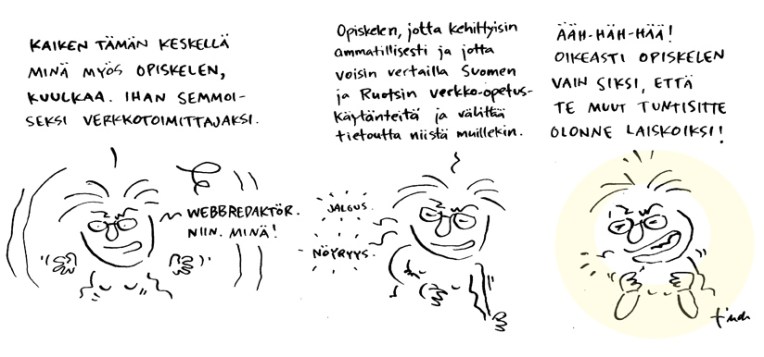 KAIKEN TÄMÄN KESKELLÄ
MINÄ MYÖS OPISKELEN,
KUULKAA. IHAN SEMMOI-
SEKSI VERKKOTOIMITTAJAKSI.
WEBBREDAKTÖR.
NIIN. MINÄ!
Opiskelen, jotta kehittyisin
ammatillisesti ja jotta
voisin vertailla Suomen
ja Ruotsin verkko-opetus-
käytänteitä ja välittää
tietoutta niistä muillekin.
JALOUS.
NÖYRYYS.
ÄÄH-HÄH-HÄÄ!
OIKEASTI OPISKELEN
VAIN SIKSI, ETTÄ
TE MUUT TUNTISITTE
OLONNE LAISKOIKSI!